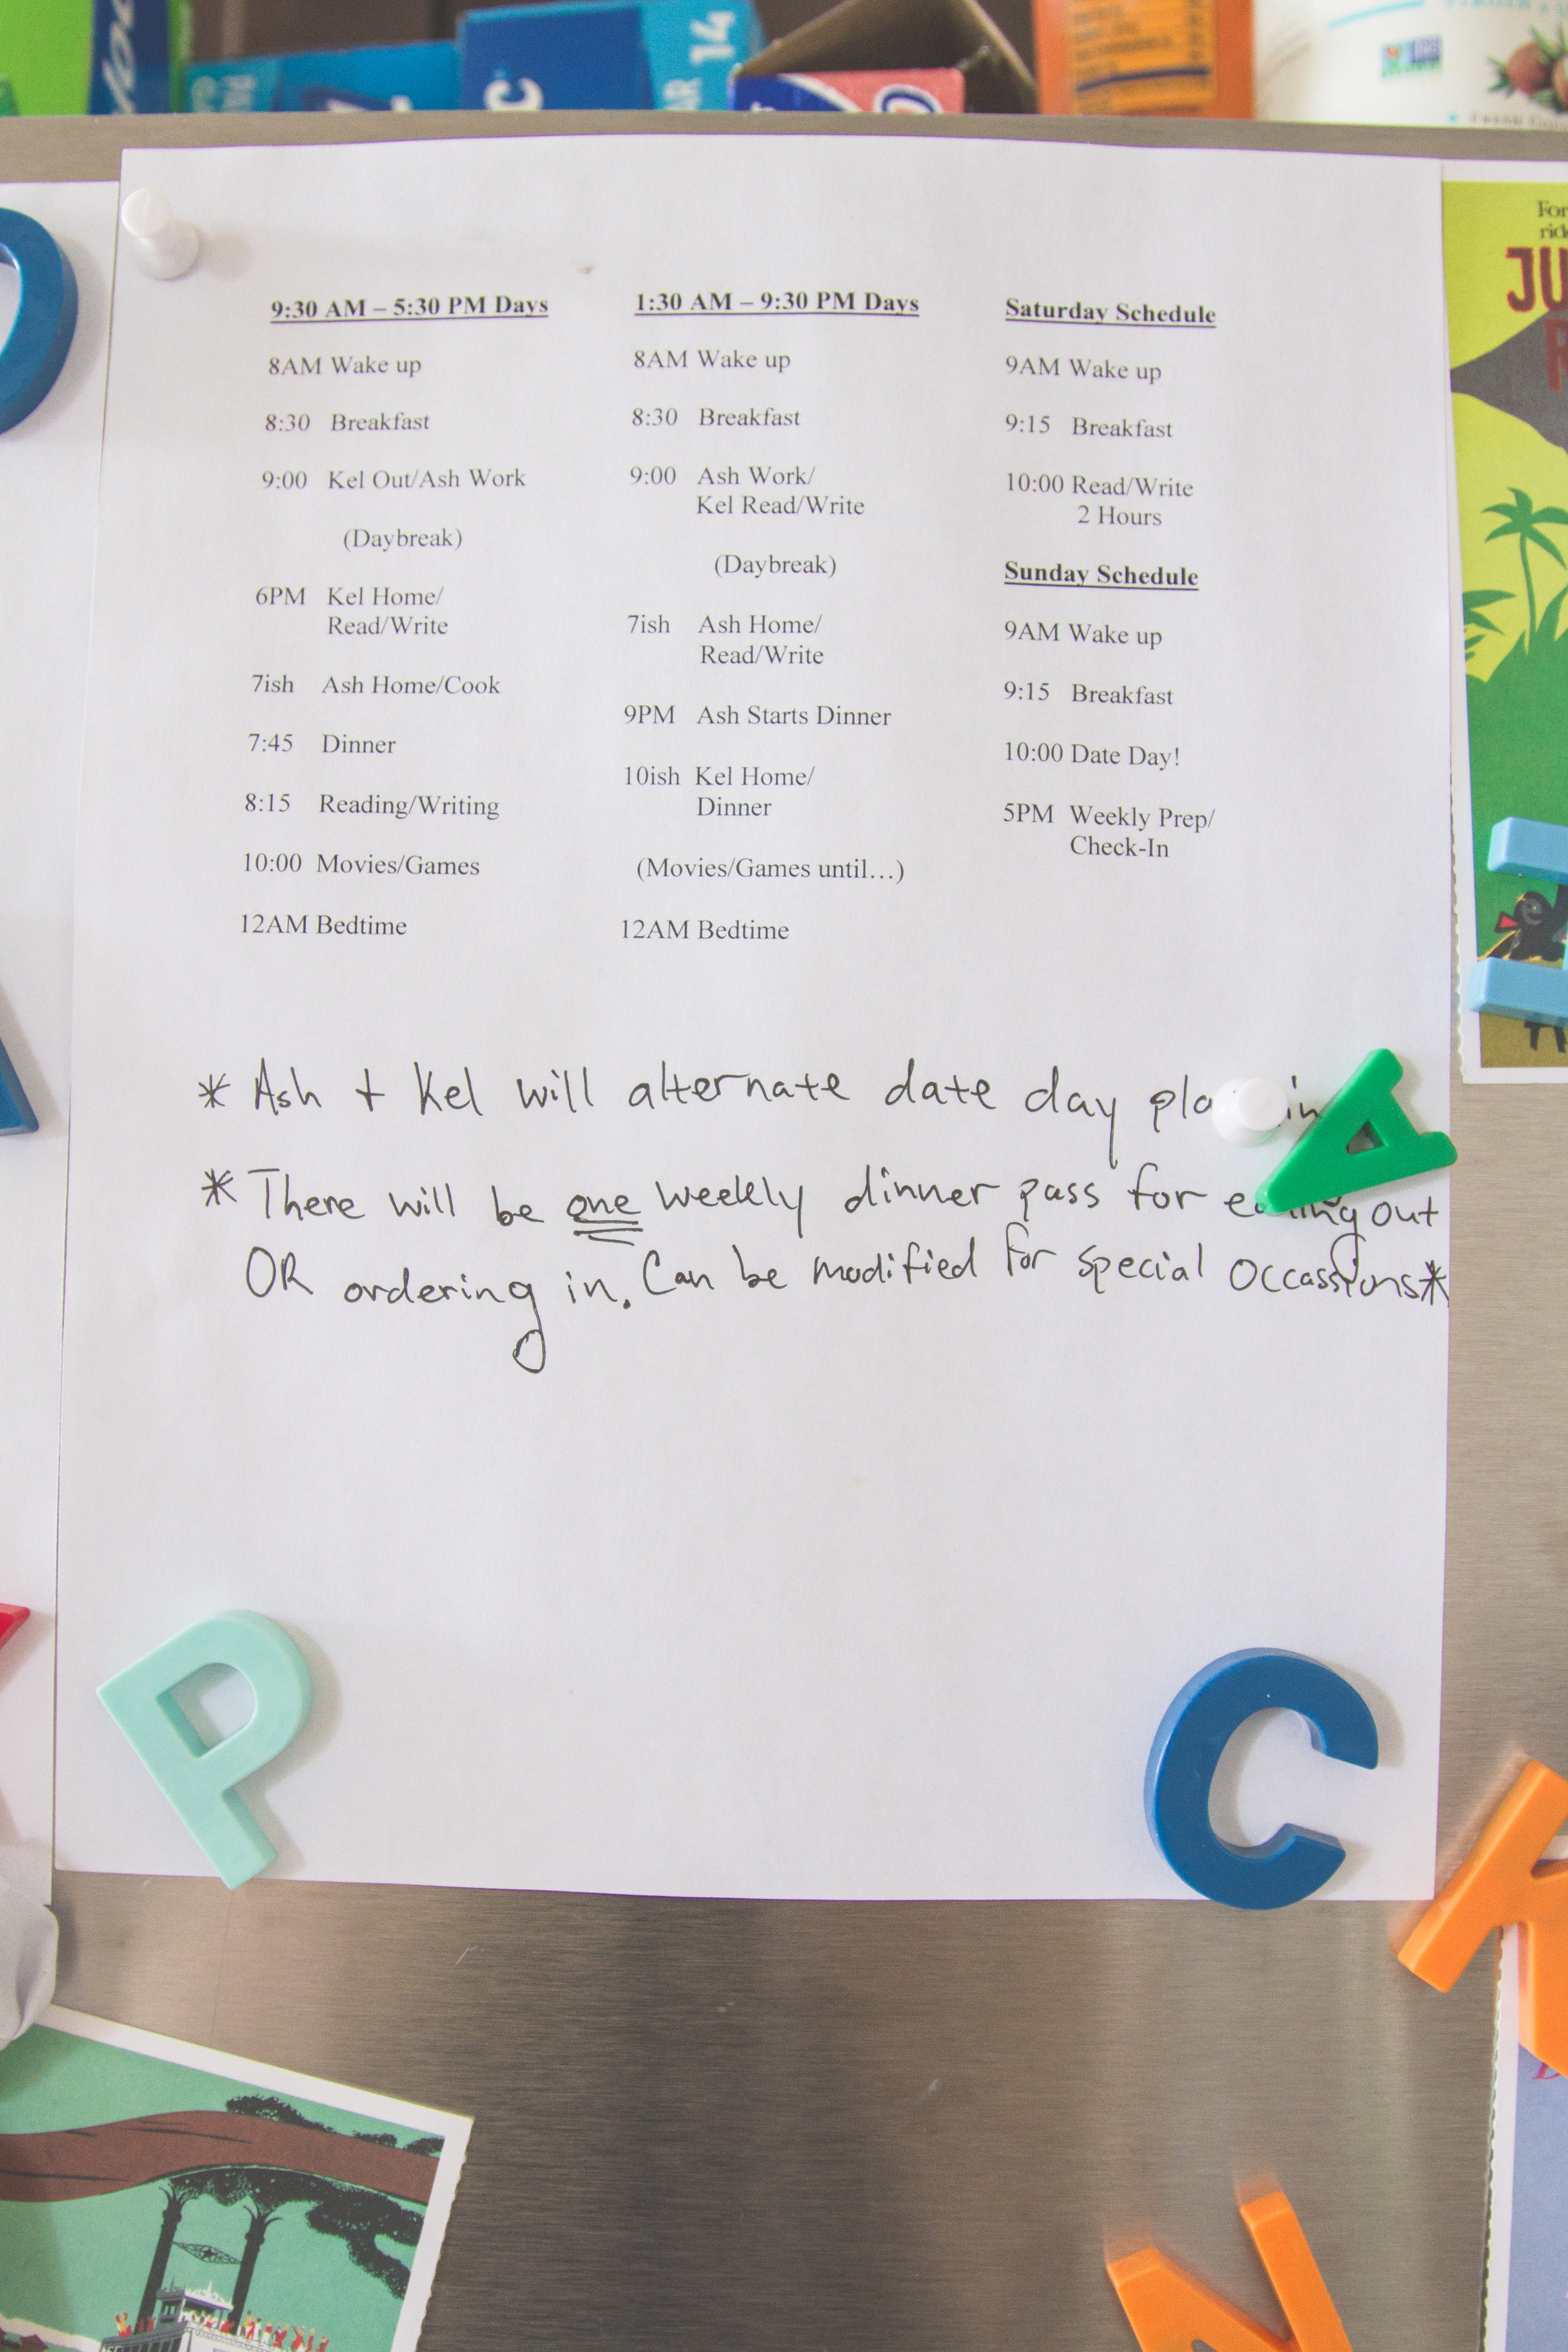 14
C
For
JU
9:30 AM – 5:30 PM Days
8AM Wake up
8:30 Breakfast
9:00 Kel Out/Ash Work
(Daybreak)
6PM Kel Home/
Read/Write
7ish Ash Home/Cook
7:45 Dinner
8:15 Reading/Writing
10:00 Movies/Games
12AM Bedtime
1:30 AM – 9:30 PM Days
8AM Wake up
8:30 Breakfast
9:00 Ash Work/
Kel Read/Write
(Daybreak)
7ish Ash Home/
Read/Write
9PM Ash Starts Dinner
10ish Kel Home/
Dinner
(Movies/Games until…)
12AM Bedtime
Saturday Schedule
9AM Wake up
9:15 Breakfast
10:00 Read/Write
2 Hours
Sunday Schedule
9AM Wake up
9:15 Breakfast
10:00 Date Day!
5PM Weekly Prep/
Check-In
* Ash + Kel will alternate date day
* There will be one weekly dinner pass for eating out
OR ordering in. Can be modified for special occassions*
A
P
C
K